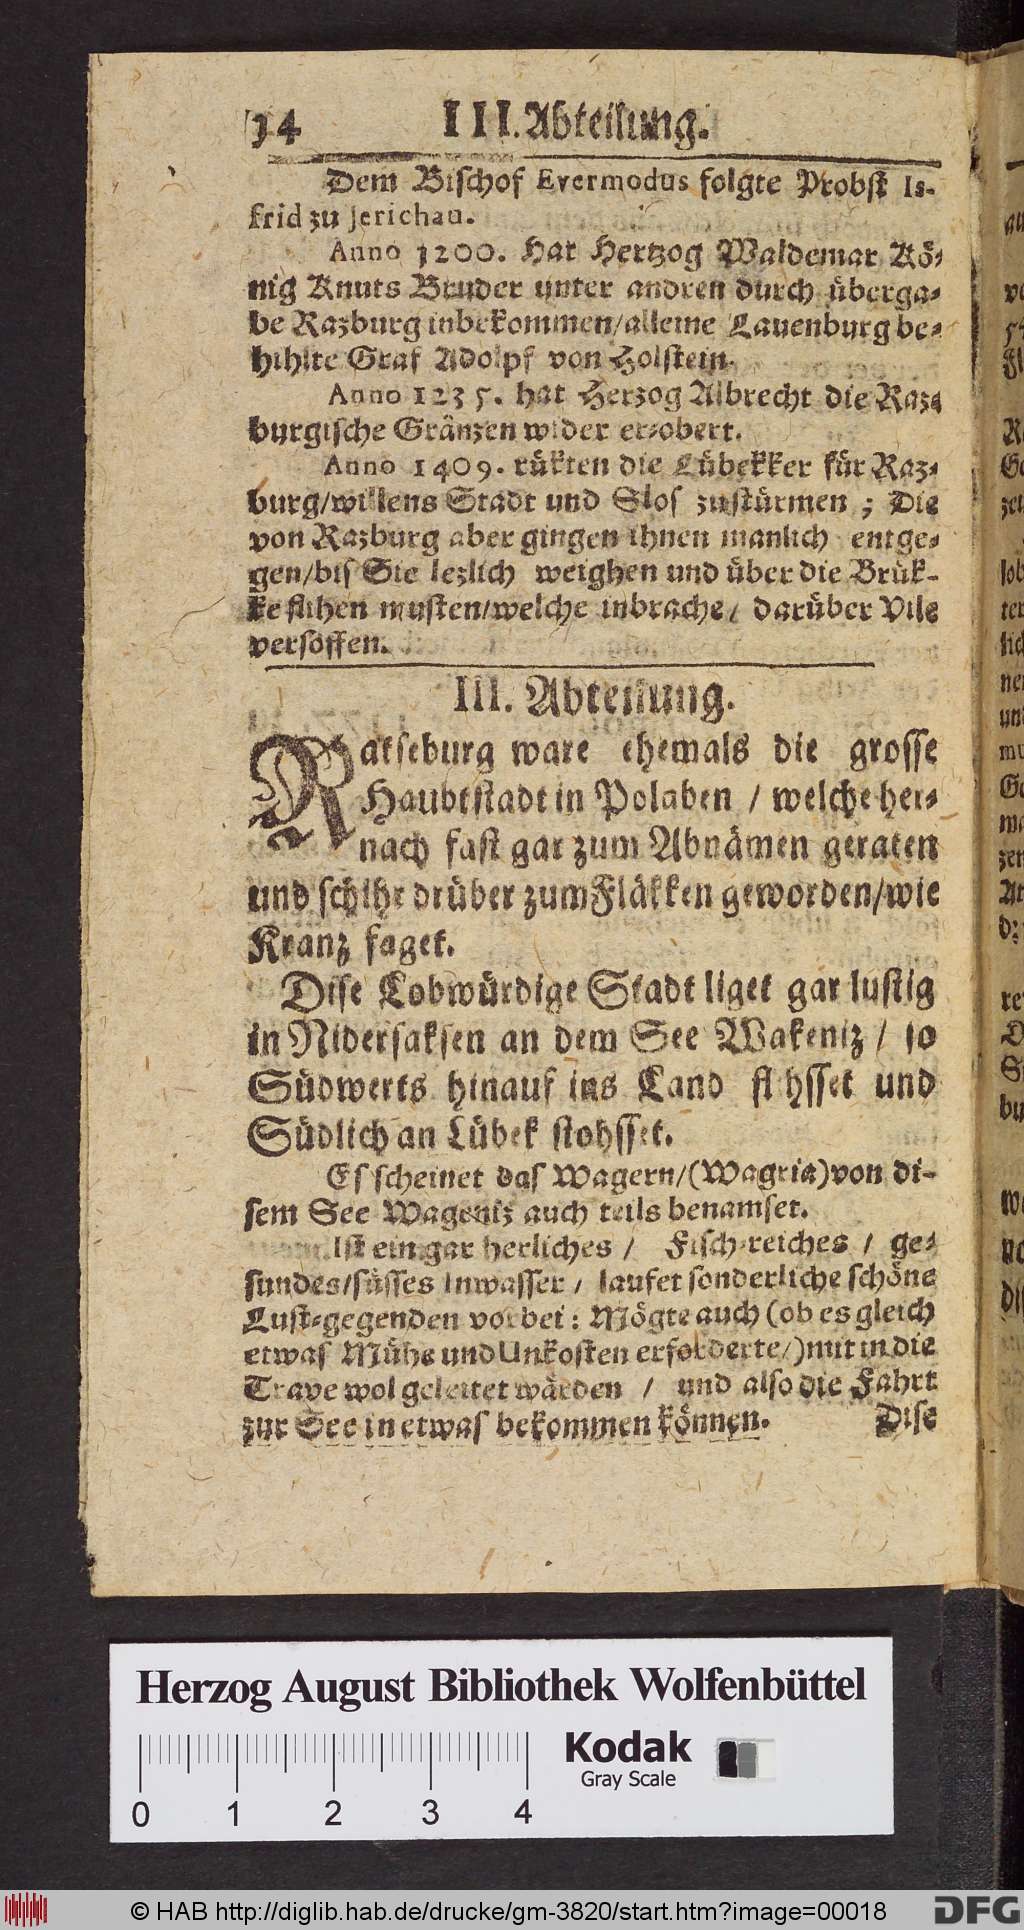 14 III. Abteilung.
Dem Bischof Evermodus folgte Probst Is-
frid zu Jerichau.
Anno 1200. hat Hertzog Waldemar Kö-
nig Knuts Bruder unter andren durch überga-
be Razburg inbekommen/alleine Lauenburg be-
hihlte Graf Adolpf von Holstein.
Anno 1235. hat Herzog Albrecht die Raz-
burgische Gränzen wider er-obert.
Anno 1409. rükten die Lübekker für Raz-
burg/willens Stadt und Slos zustürmen; Die
von Razburg aber gingen ihnen manlich entge-
gen/bis Sie lezlich weighen und über die Brük-
ke flihen musten/welche inbrache/ darüber Vile
versoffen.
III. Abteilung.
Ratseburg ware ehemals die grosse
Haubtstadt in Polaben / welche her-
nach fast gar zum Abnämen geraten
und schihr drüber zum Fläkken geworden/wie
Kranz saget.
Dise Lobwürdige Stadt liget gar lustig
in Nidersaksen an dem See Wakeniz / so
Südwerts hinauf ins Land flihsset und
Südlich an Lübek stohsset.
Es scheinet das Wagern/(Wagria) von di-
sem See Wageniz auch teils benamset.
Ist ein gar herliches / Fisch-reiches / ge-
sundes/süsses Inwasser / laufet sonderliche schöne
Lust-gegenden vorbei: Mögte auch (ob es gleich
etwas Mühe und Unkosten erforderte/) mit in die
Trave wol geleitet wärden / und also die Fahrt
zur See in etwas bekommen können. Dise
Herzog August Bibliothek Wolfenbüttel
Kodak
Gray Scale
0 1 2 3 4
© HAB http://diglib.hab.de/drucke/gm-3820/start.htm?image=00018
DFG